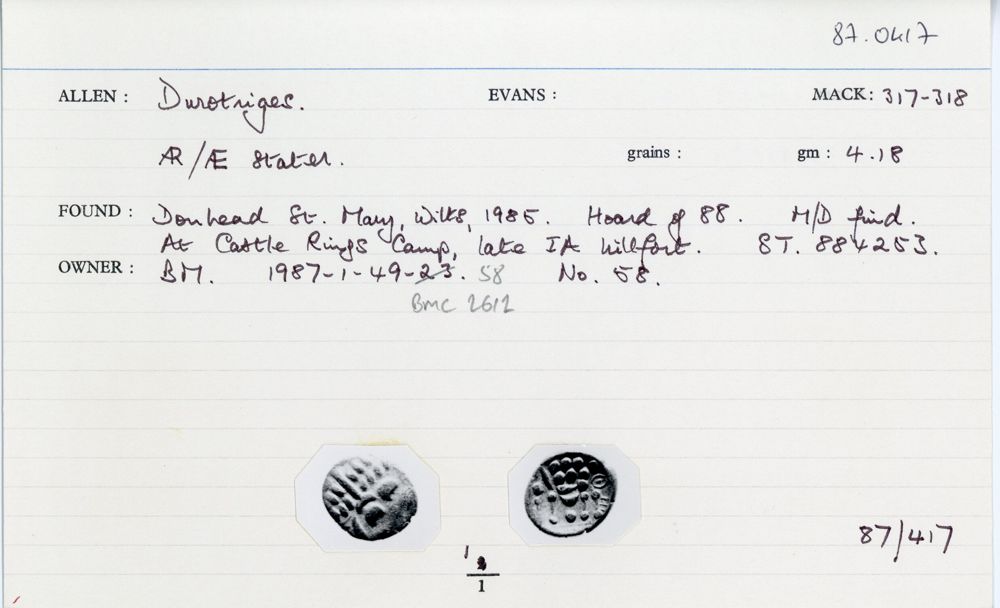 87.0417
ALLEN : Durotriges. EVANS : MACK: 317-318
ÆR/Æ Stater. grains : gm : 4.18
FOUND : Donhead St. Mary, Wilts, 1985. Hoard of 88. M/D find.
At Castle Rings Camp, late IA hillfort. ST. 884253.
OWNER : BM. 1987-1-49-23. 58 No. 58.
BMC 2612
87/417
1
1